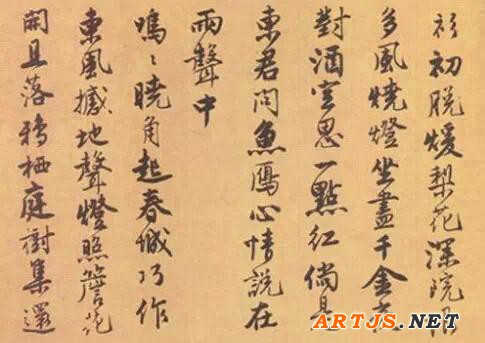 衫初脱煖梨花深院恰
多風燒燈坐盡千金夜
對酒空思一點紅倘是
東君問魚鴈心情說在
雨聲中
嗚〻曉角起春城巧作
東風撼地聲燈照簷花
開且落鴉栖庭樹集還
ARTJS.NET